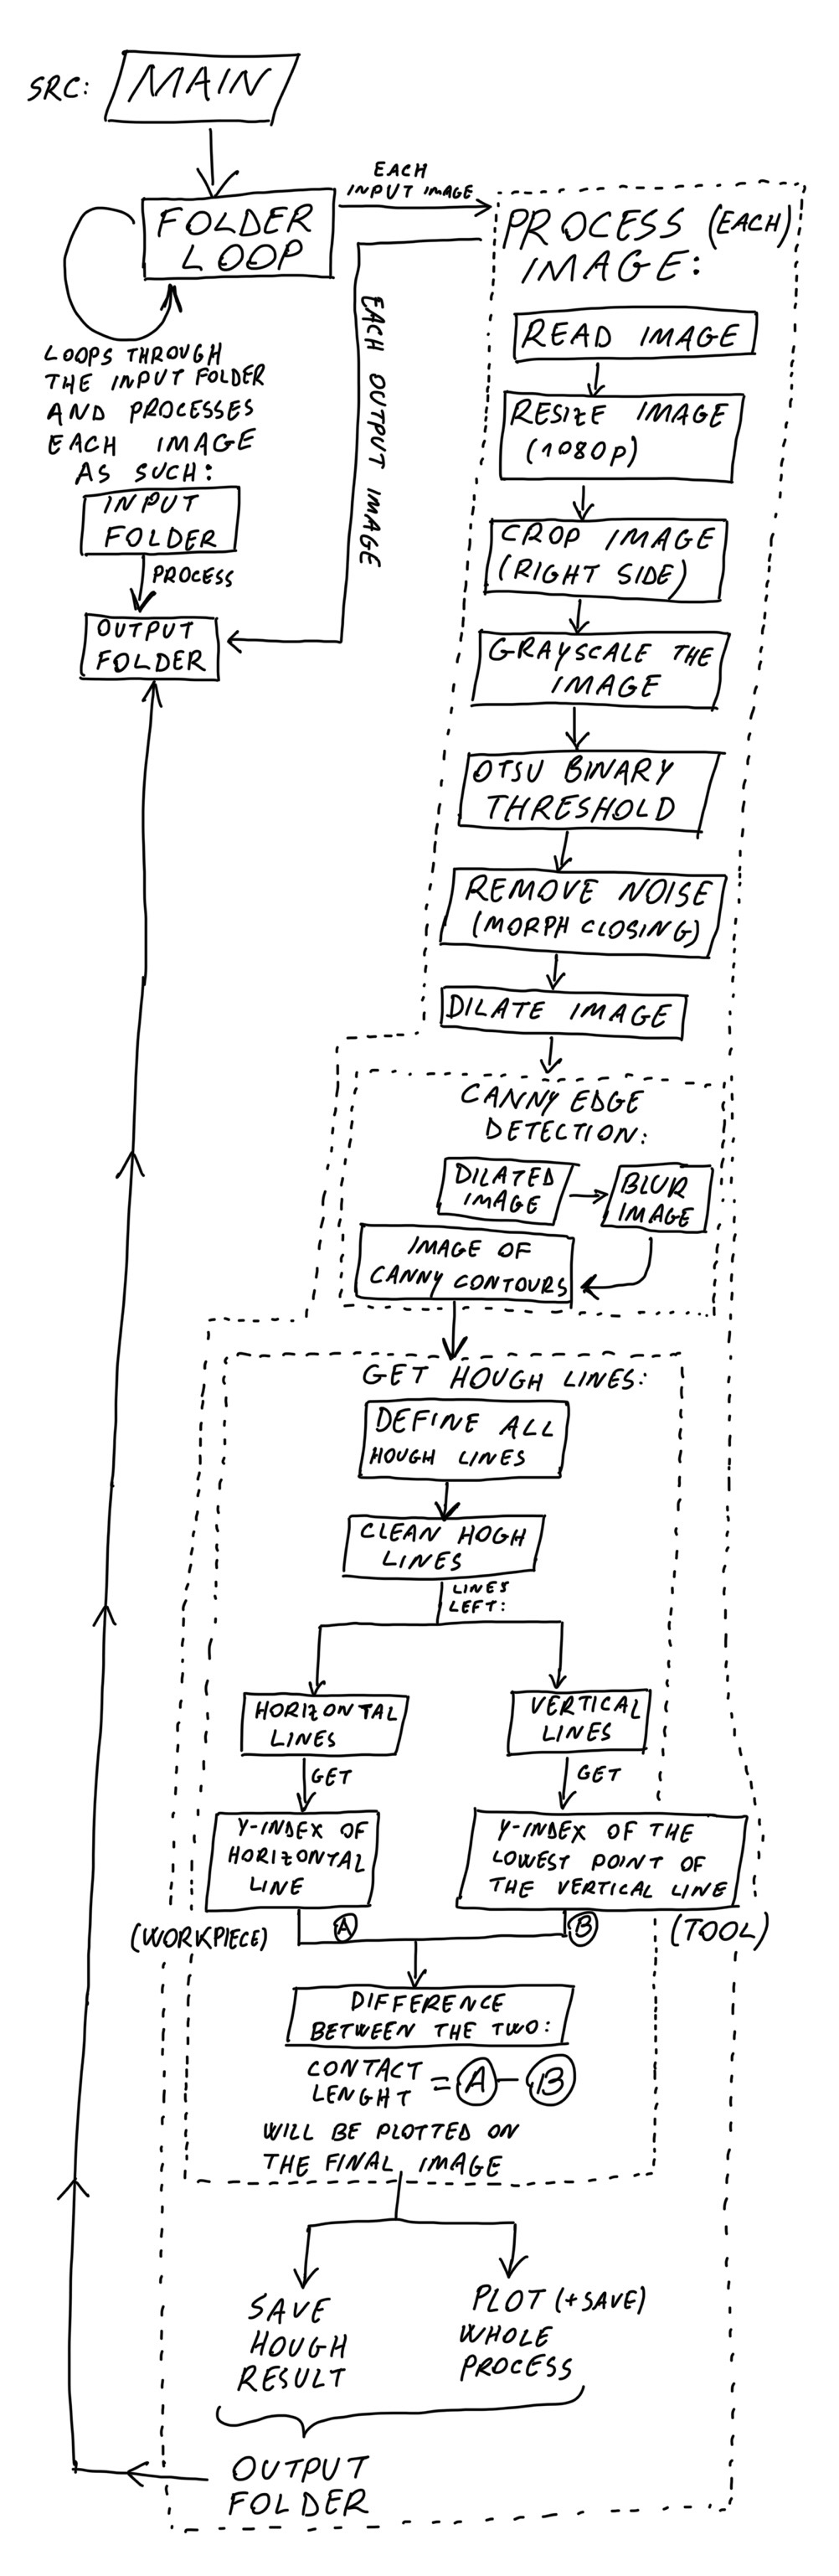 SRC: MAIN
FOLDER
LOOP
EACH
INPUT IMAGE
LOOPS THROUGH
THE INPUT FOLDER
AND PROCESSES
EACH IMAGE
AS SUCH:
INPUT
FOLDER
PROCESS
OUTPUT
FOLDER
EACH OUTPUT IMAGE
PROCESS (EACH)
IMAGE:
READ IMAGE
RESIZE IMAGE
(1080p)
CROP IMAGE
(RIGHT SIDE)
GRAYSCALE THE
IMAGE
OTSU BINARY
THRESHOLD
REMOVE NOISE
(MORPH CLOSING)
DILATE IMAGE
CANNY EDGE
DETECTION:
DILATED
IMAGE
BLUR
IMAGE
IMAGE OF
CANNY CONTOURS
GET HOUGH LINES:
DEFINE ALL
HOUGH LINES
CLEAN HOGH
LINES
LINES
LEFT:
HORIZONTAL
LINES
GET
Y-INDEX OF
HORIZONTAL
LINE
(WORKPIECE)
A
VERTICAL
LINES
GET
Y-INDEX OF THE
LOWEST POINT OF
THE VERTICAL LINE
B
(TOOL)
DIFFERENCE
BETWEEN THE TWO:
CONTACT
LENGHT = A - B
WILL BE PLOTTED ON
THE FINAL IMAGE
SAVE
HOUGH
RESULT
PLOT (+SAVE)
WHOLE
PROCESS
OUTPUT
FOLDER